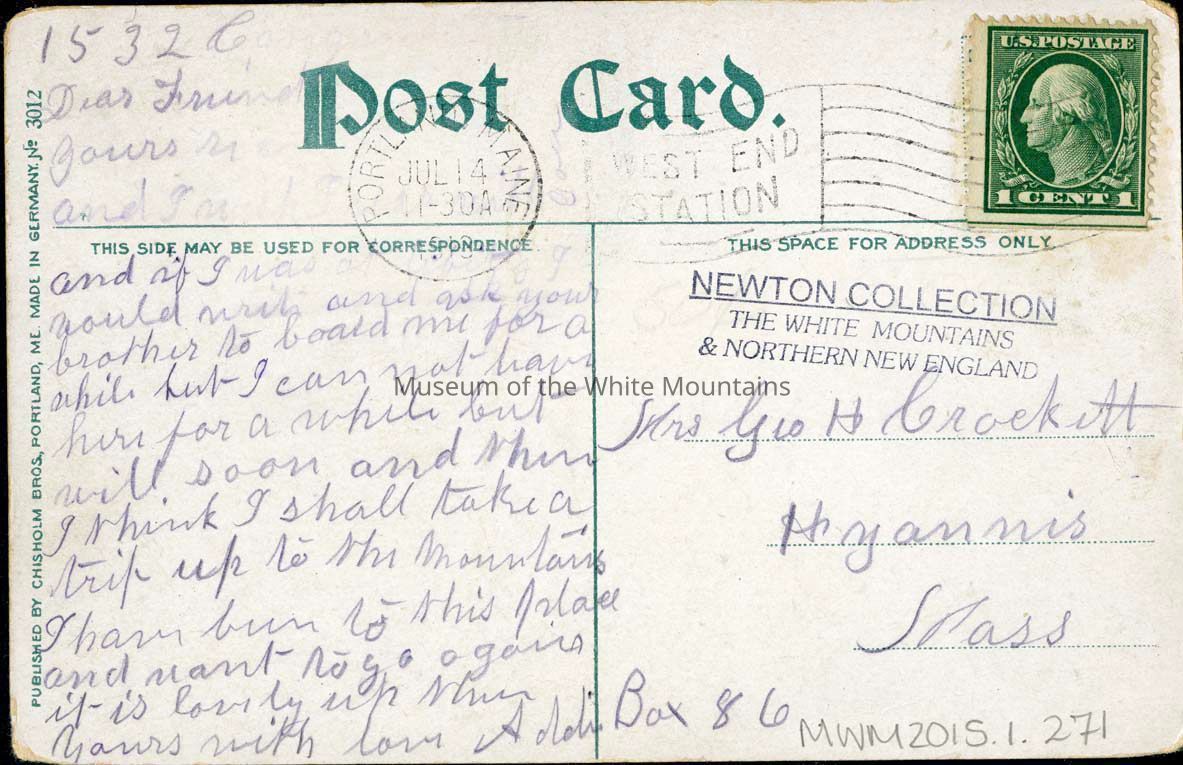 1532 C
Dear Friend
yours
and I
Post Card.
PORTLAND MAINE
JUL 14
11-30A
WEST END
STATION
U.S. POSTAGE
1 CENT 1
THIS SIDE MAY BE USED FOR CORRESPONDENCE.
THIS SPACE FOR ADDRESS ONLY.
PUBLISHED BY CHISHOLM BROS, PORTLAND, ME. MADE IN GERMANY. № 3012
and if I was
would and ask your
brother to board me for a
while but I can not leave
here for a while but
will soon and then
I think I shall take a
trip up to the Mountains
I have been to this place
and want to go again
it is lovely up there
yours with love Addie
NEWTON COLLECTION
THE WHITE MOUNTAINS
& NORTHERN NEW ENGLAND
Museum of the White Mountains
Mrs Geo H Crockett
Hyannis
Mass
Box 86
MWM2015.1.271